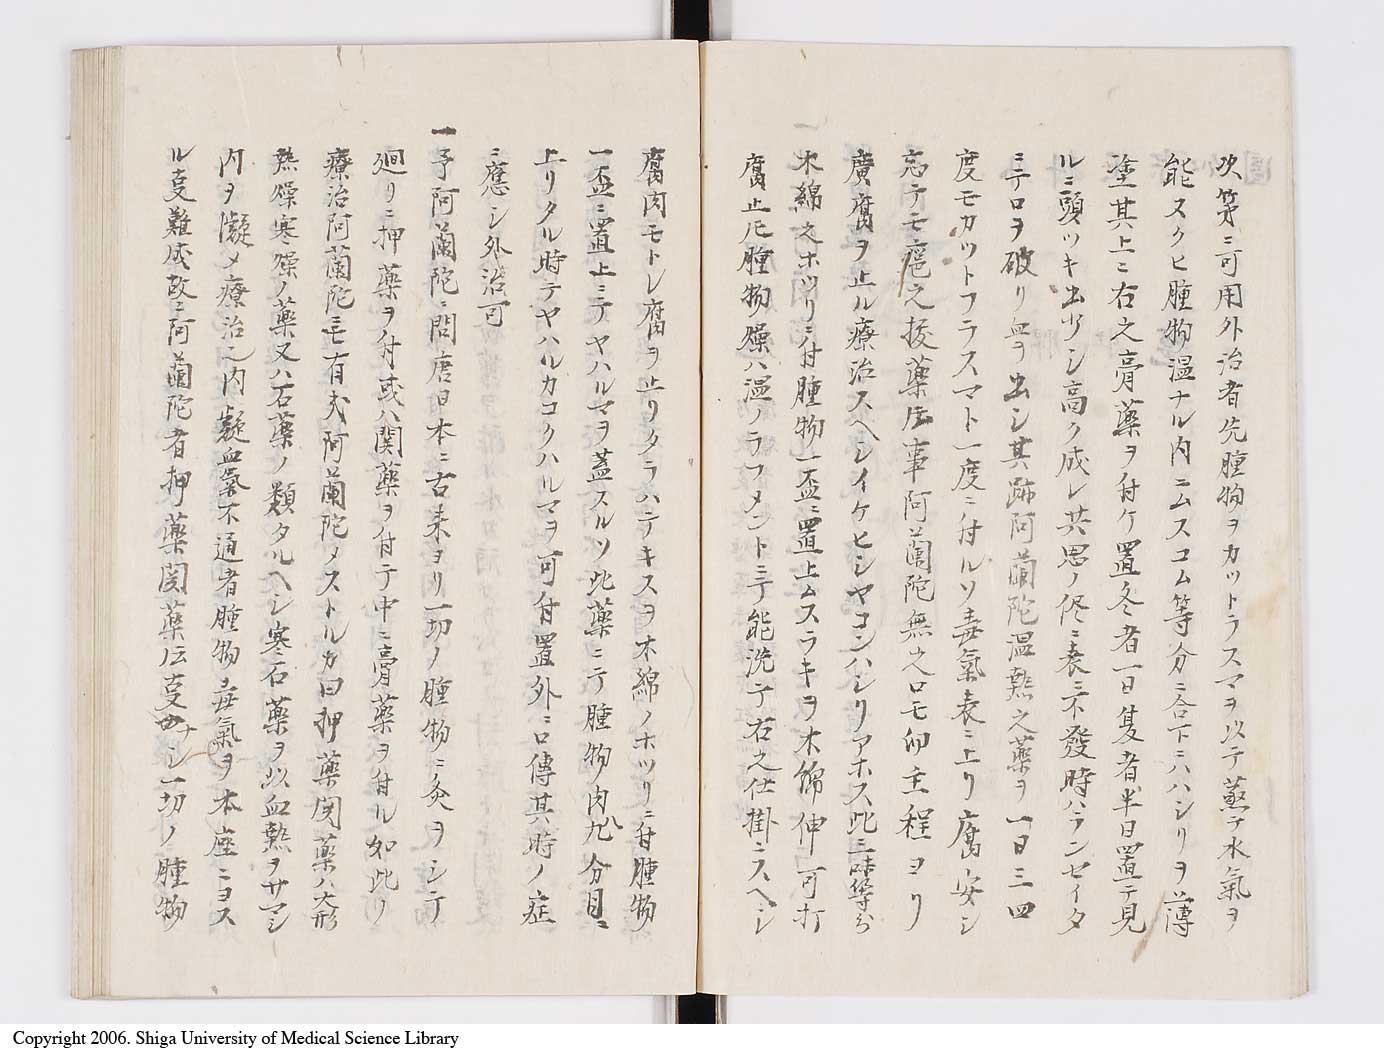 次第ニ可用外治者先腫物ヲカットラスマヲ以テ蒸テ水氣ヲ
能スクヒ腫物温ナル内ニムスコム等分ニ合下ニハハシリヲ薄
塗其上ニ右之膏藥ヲ付ケ置冬者一日夏者半日置テ見
ルニ頭ツキ出少シ高ク成レ共思ノ侭ニ表ニ不發時ハランセイタ
ニテ口ヲ破リ血ヲ出シ其跡阿蘭陀温熱之藥ヲ一日三四
度モカツトフラスマト一度ニ付ルソ毒氣表ニ上リ腐安シ
忘テモ疱之抜藥圧事阿蘭陀無之口モ卯主程ヨリ
廣腐ヲ止ル療治スヘシイケヒシヤコンハシリアホス此三味等分
木綿之ホツリニ付腫物一盃ニ置上ムスラキヲ木綿伸一可打
腐止尼腫物燥ハ温ノラフメントニテ能洗テ右之仕掛ニスヘシ
腐肉モトレ腐ヲ止リタラハテキスヲ木綿ノホツリニ付腫物
一盃ニ置上ニテヤハルマヲ蓋スルソ此藥ニテ腫物ノ肉八九分目ニ
上リタル時テヤハルカコクハルマヲ可付置外ニ口傳其時ノ症
ニ應シ外治可
一予阿蘭陀ニ問唐日本ニ古来ヨリ一切ノ腫物ニ灸ヲシテ
廻リニ押藥ヲ付或ハ関藥ヲ付テ中ニ膏藥ヲ付ル如此ノ
療治阿蘭陀ニモ有哉阿蘭陀メストルカ曰押藥関藥ハ大形
熱燥寒燥ノ藥又ハ石藥ノ類タルヘシ寒石藥ヲ以血熱ヲサマシ
内ヲ凝メ療治之内凝血氣不通者腫物毒氣ヲ本座ニヨス
ル夏難成故ニ阿蘭陀者押藥関藥伝夏ナシ一切ノ腫物
Copyright 2006. Shiga University of Medical Science Library